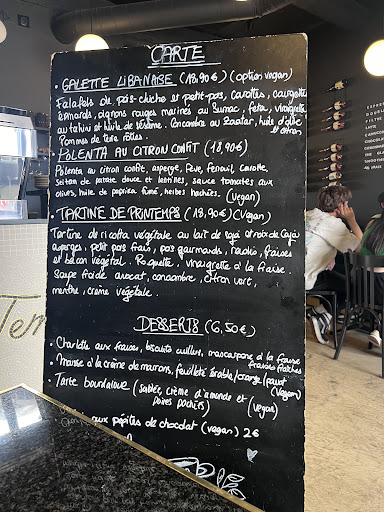 CARTE
• GALETTE LIBANAISE (18,90€) (option vegan)
Falafels de pois-chiche et petit-pois, carottes, courgette
épinards, oignons rouges marinés au Sumac, feta, vinaigrette
au tahini et huile de sésame. Concombre au Zaatar, huile d'olive
et citron
Pommes de terre rôties.
• POLENTA AU CITRON CONFIT (18,90€)
Polenta au citron confit, asperge, fève, fenouil, carotte,
seitan de patate douce et lentilles, sauce tomates aux
olives, huile de paprika fumé, herbes hachées. (Vegan)
• TARTINE DE PRINTEMPS (18,90€) (Vegan)
Tartine de ricotta végétale au lait de soja et noix de Cajou
asperges, petit pois frais, pois gourmands, radis, fraises
et bacon végétal. Roquette, vinaigrette à la fraise.
Soupe froide avocat, concombre, citron vert,
menthe, crème végétale.
DESSERTS (6,50€)
• Charlotte aux fraises, biscuits cuillers, mascarpone à la fraise
fraises fraîches
• Mousse à la crème de marrons, feuilleté érable/orange/pavot
(Vegan)
• Tarte bourdaloue (sablée, crème d'amande et
poires pochées) (Vegan)
aux pépites de chocolat (vegan) 2€
Tem